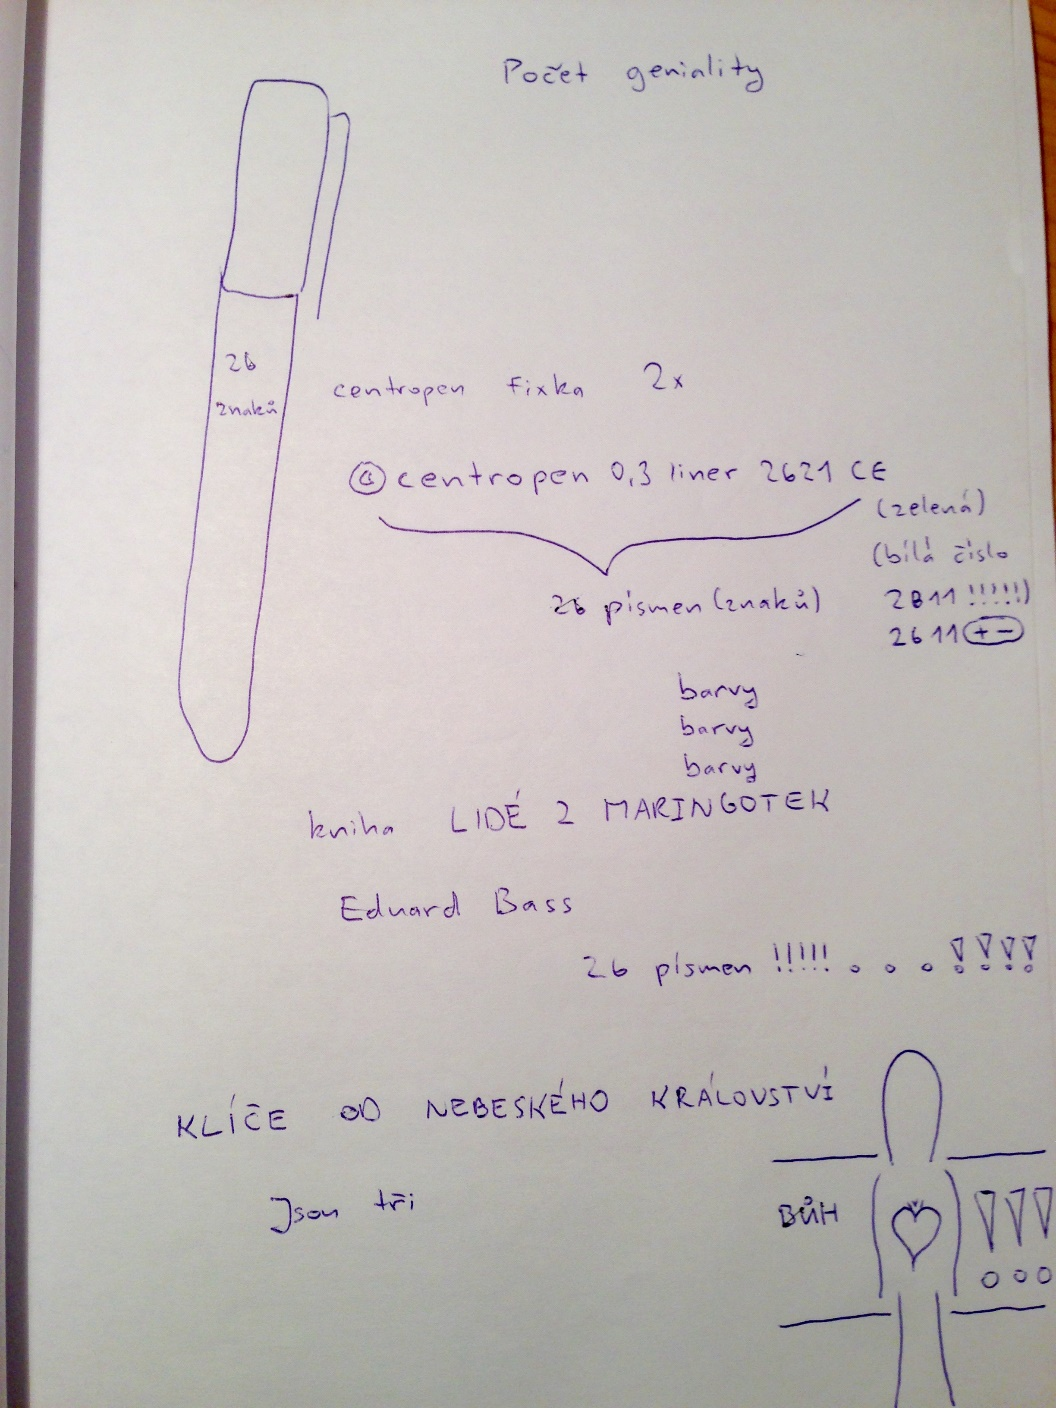 Počet geniality
26
znaků
centropen fixka 2x
centropen 0,3 liner 2621 CE
(zelená)
(bílá číslo
2811 !!!!!)
2611 + -
26 písmen (znaků)
barvy
barvy
barvy
kniha LIDÉ Z MARINGOTEK
Eduard Bass
26 písmen !!!!! . . . ! ! ! !
KLÍČE OD NEBESKÉHO KRÁLOVSTVÍ
Jsou tři
BŮH !!!